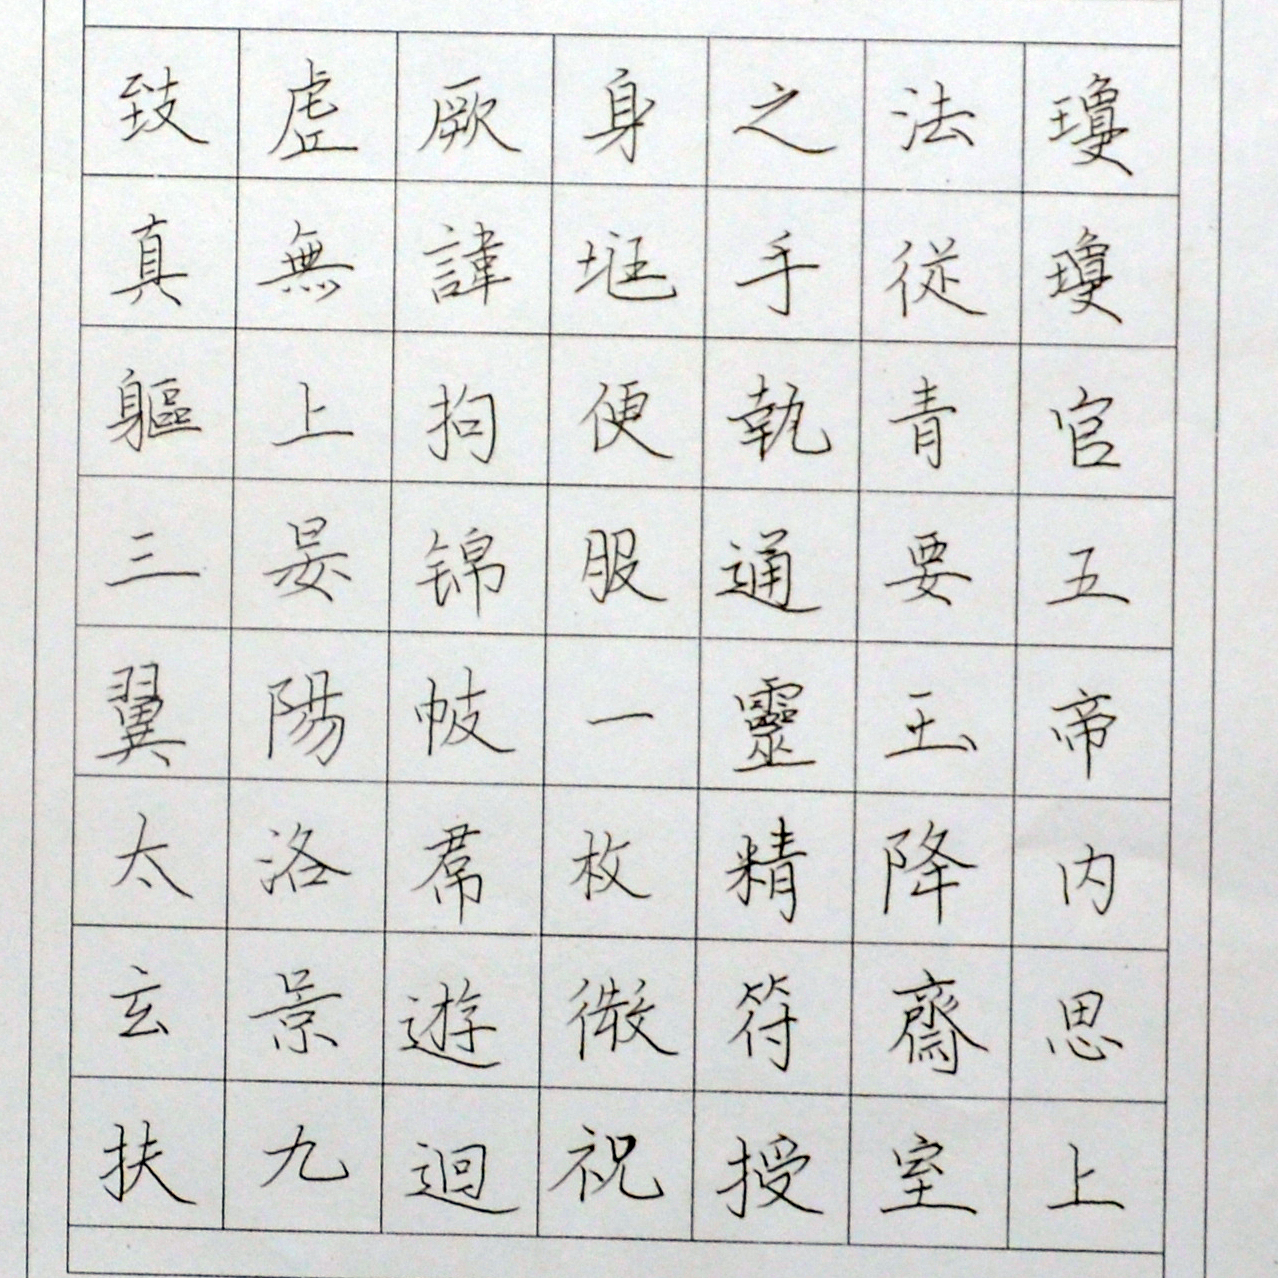 瓊瓊宫五帝内思上
法從青要玉降齋室
之手執通靈精符授
身便服一枚微祝
厥諱拘锦帔席遊迴
虚無上晏陽洛景九
致真軀三翼太玄扶